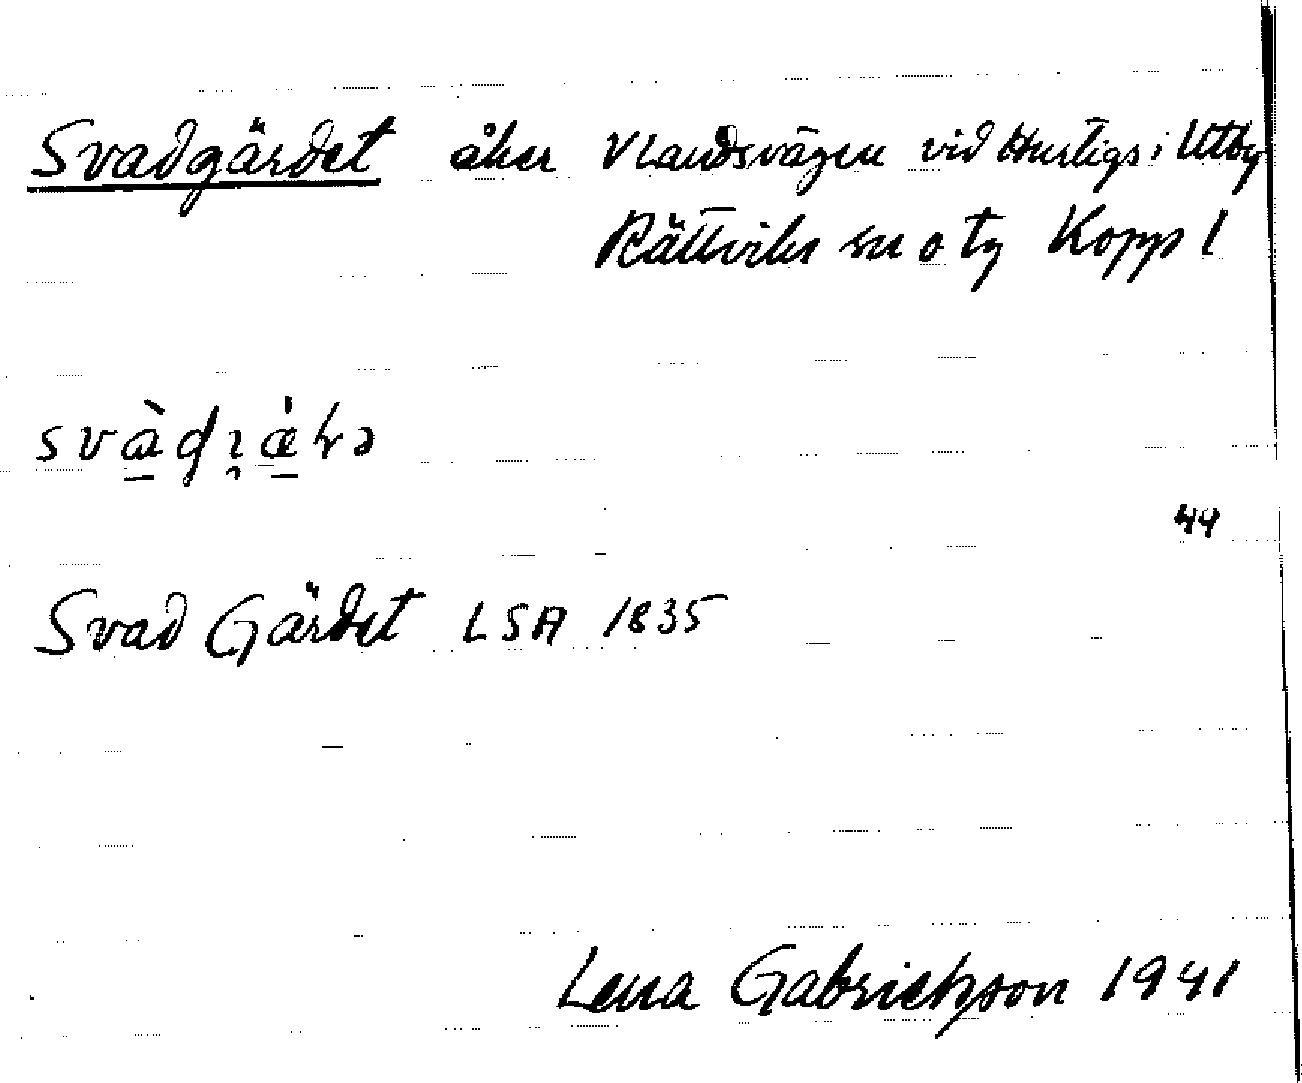 Svadgärdet åker V landsvägen vid Hurtigs i Utby
Rättviks sn o tg Kopp l
44
Svad Gärdet LSA 1835
Lena Gabrielsson 1941